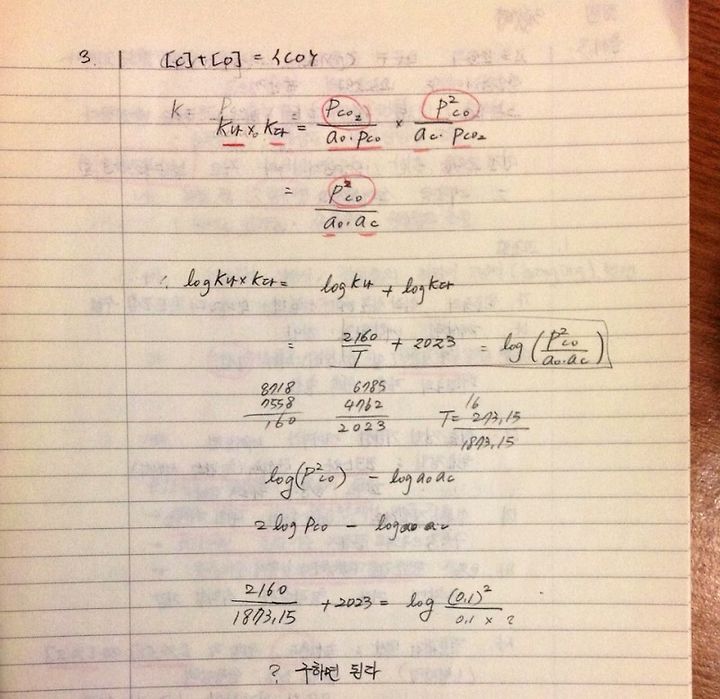 3. [C]+[O] = {CO}
K P
K나 x K다 = Pco₂ / ao·Pco × P²co / ac·Pco₂
= P²co / ao·ac
∴ log K나 x K다 = log K나 + log K다
= 2160 / T + 2023 = log (P²co / ao·ac)
8718 6785 16
7558 4762 T = 273,15
160 2023 1873,15
log(P²co) - log ao ac
2 log Pco - log ao ac
2160 / 1873,15 + 2023 = log (0,1)² / 0,1 x ?
? 구하면 된다